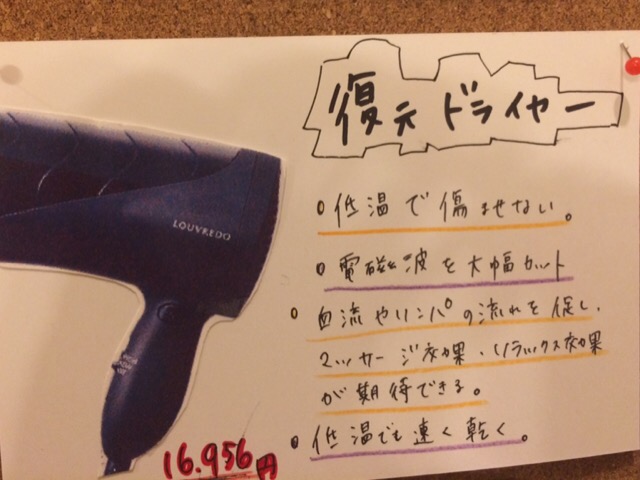 復元ドライヤー
LOUVREDO
○低温で傷ませない。
○電磁波を大幅カット
○血流やリンパの流れを促し、
マッサージ効果、リラックス効果
が期待できる。
○低温でも速く乾く。
16.956円